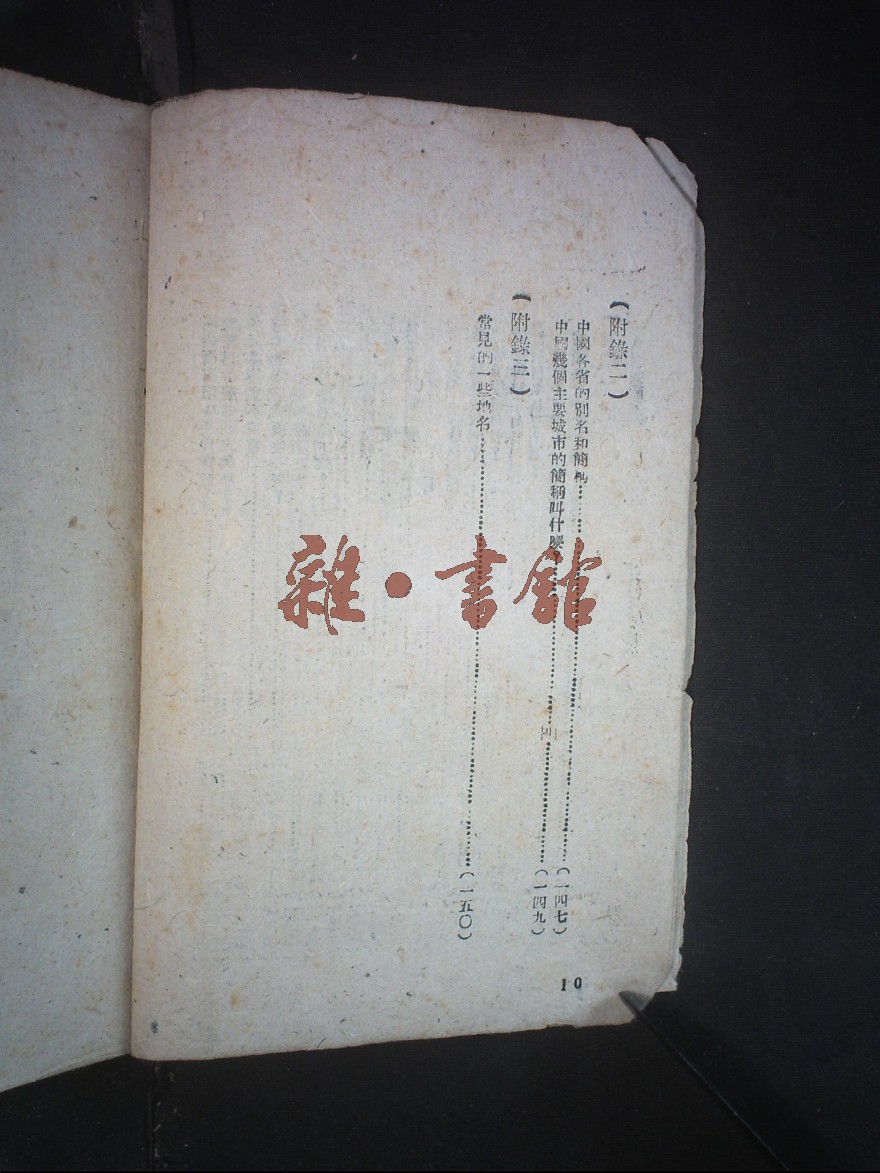 （附錄二）
中國各省的別名和簡稱……（一四七）
中國幾個主要城市的簡稱叫什麼？……（一四九）
（附錄三）
常見的一些地名……（一五〇）
10
雜·書館